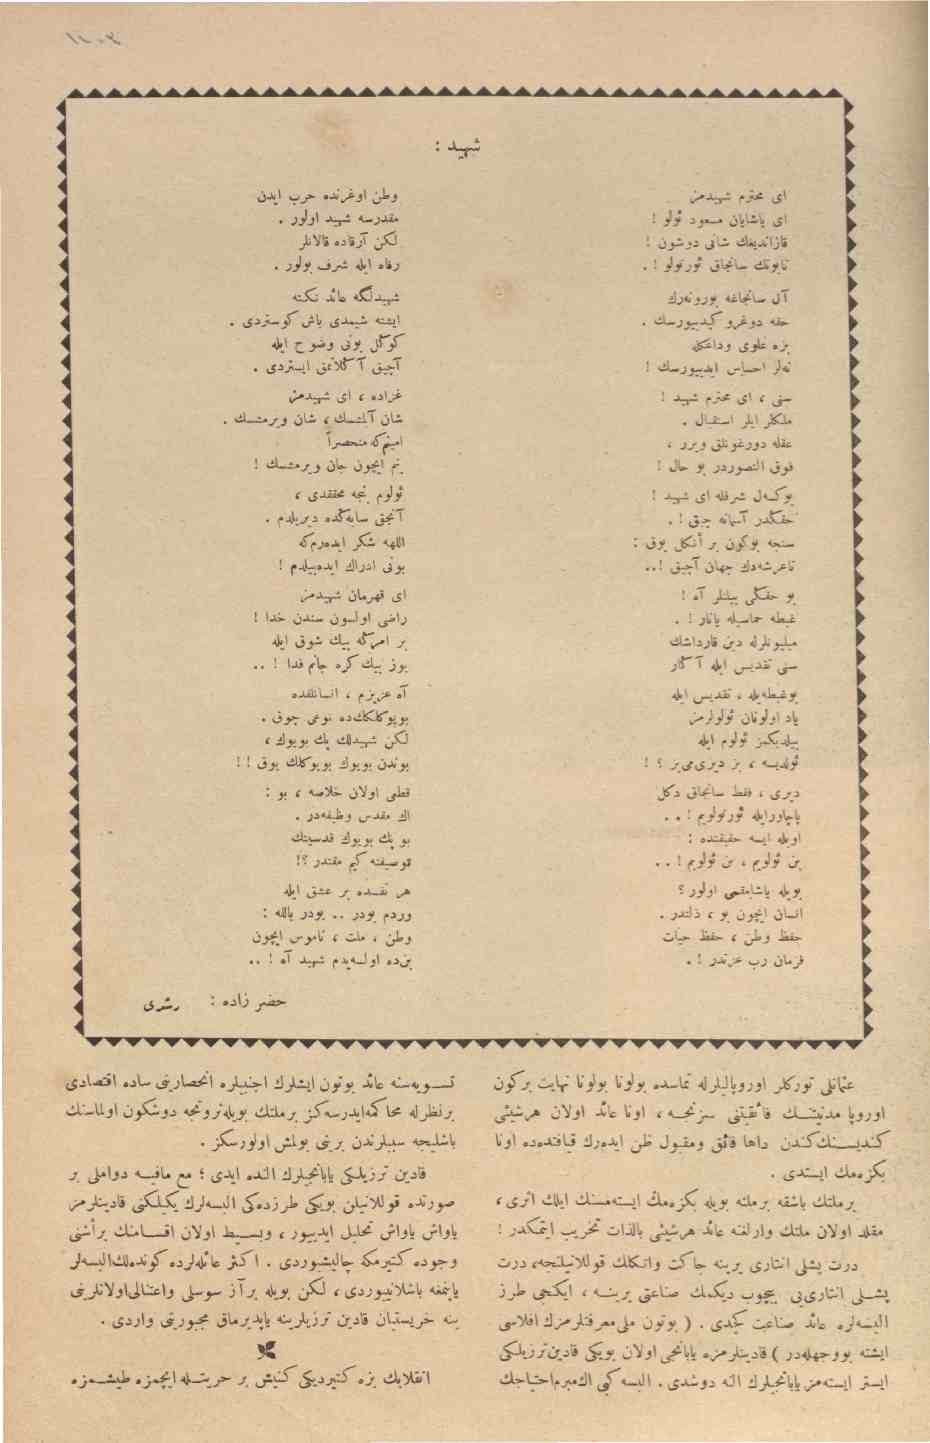 شهيد :
ای محترم شهيدمز
ای ياشايان مسعود ئولو !
قازانديغك شانی دوشون !
تابوتك سانجاق ئورتولو ! .
آل سانجاغه بورونه‌رك
حقه دوغرو كيدييورسك .
بزه علوی وداعكله
نه‌لر احساس ايدييورسك !
سنی ، ای محترم شهيد !
ملكلر ايلر استقبال .
عقله دورغونلق ويرر ،
فوق التصوردر بو حال !
يوكسه‌ل شرفله ای شهيد !
حقكدر آسمانه چيق ! .
سنجه بوكون بر أنكل يوق :
تاعرشه‌دك جهان آچيق ! ..
بو حقكی بيلنلر آه !
غبطه حماسيله يانار ! .
ميليونلرله دين قارداشك
سنی تقديس ايله آكار
بوغبطه‌يله ، تقديس ايله
ياد اولونان ئولولرمز
بيلديكمز ئولوم ايله
ئولديسه ، بز ديری‌می‌يز ؟ !
ديری ، فقط سانجاق دكل
پاچاورايله ئورتولويم ! . .
اويله ايسه حقيقتده :
بن ئولويم ، بن ئولويم ! . .
بويله ياشامقمی اولور ؟
انسان ايچون بو ، ذلتدر .
حفظ وطن ، حفظ حيات
فرمان رب عزتدر ! .
وطن اوغرنده حرب ايدن
مقدرسه شهيد اولور .
لكن آرقاده قالانلر
رفاه ايله شرف بولور .
شهيدلكه عائد نكته
ايشته شيمدی باش كوستردی .
كوكل بونی وضوح ايله
آچيق آكلاتمق ايستردی .
غزاده ، ای شهيدمز
شان آلمشسك ، شان ويرمشسك .
امينم‌كه منحصراً
بنم ايچون جان ويرمشسك !
ئولوم بنجه محققدی ،
آنجق سايه‌كده ديريلدم .
اللهه شكر ايده‌رم‌كه
بونی ادراك ايده‌بيلدم !
ای قهرمان شهيدمز
راضی اولسون سندن خدا !
بر امرڭه بيك شوق ايله
يوز بيك كره جانم فدا ! ..
آه عزيزم ، انسانلقده
بويوكلكك‌ده نوعی چوق .
لكن شهيدلك پك بويوك ،
بوندن بويوك بويوكلك يوق ! !
قطعی اولان خلاصه ، بو :
اك مقدس وظيفه‌در .
بو پك بويوك قدسيتك
توصيفنه كيم مقتدر ؟!
هر نفسده بر عشق ايله
وردم بودر .. بودر بالله :
وطن ، ملت ، ناموس ايچون
بن‌ده اولسه‌يدم شهيد آه ! ..
حضر زاده : رشدی
عثمانلی توركلر اوروپاليلرله تماسده بولونا بولونا نهايت بركون
اوروپا مدنيتنك فائقيتنی سزنجه ، اونا عائد اولان هرشيئی
كنديسنك‌كندن داها فائق ومقبول ظن ايده‌رك قيافتده‌ده اونا
بكزه‌مك ايستدی .
برملتك باشقه برملته بويله بكزه‌مك ايسته‌مسنك ايلك اثری ،
مقلد اولان ملتك وارلغنه عائد هرشيئی بالذات تخريب ايتمكدر !
درت پشلی انتاری يرينه جاكت واتكلك قوللانيلنجه، درت
پشلی انتاری‌يی بيچوب ديكمك صناعتی يرينه ، ايكنجی طرز
البسه‌لره عائد صناعت كچدی . ( بوتون ملی معرفتلرمزك افلاسی
ايشته بووجهله‌در ) قادينلرمزه يابانجی اولان بويكی قادين‌ترزيلكی
ايستر ايسته‌مز يابانجيلرك النه دوشدی . البسه كبی اك‌مبرم‌احتياجك
تسويه‌سنه عائد بوتون ايشلرك اجنبيلره انحصارينی ساده اقتصادی
برنظرله محاكمه‌ايدرسه‌كز برملتك بويله‌ثروتجه دوشكون اولماسنك
باشليجه سببلرندن برينی بولمش اولورسكز .
قادين ترزيلكی يابانجيلرك النده ايدی ؛ مع مافيه دواملی بر
صورتده قوللانيلن بويكی طرزده‌كی البسه‌لرك يكپلكنی قادينلرمز
ياواش ياواش تحليل ايدييور ، وبسيط اولان اقسامنك برأشنی
وجوده كتيرمكه چاليشيوردی . اكثر عائله‌لرده كونده‌لك‌البسه‌لر
ياپلمغه باشلانييوردی ، لكن بويله برآز سوسلی واعتنالی‌اولانلرينی
ينه خريستيان قادين ترزيلرينه ياپديرماق مجبوريتی واردی .
انقلابك بزه كتيرديكی كنيش بر حريتله ايچمزه طيشمزه